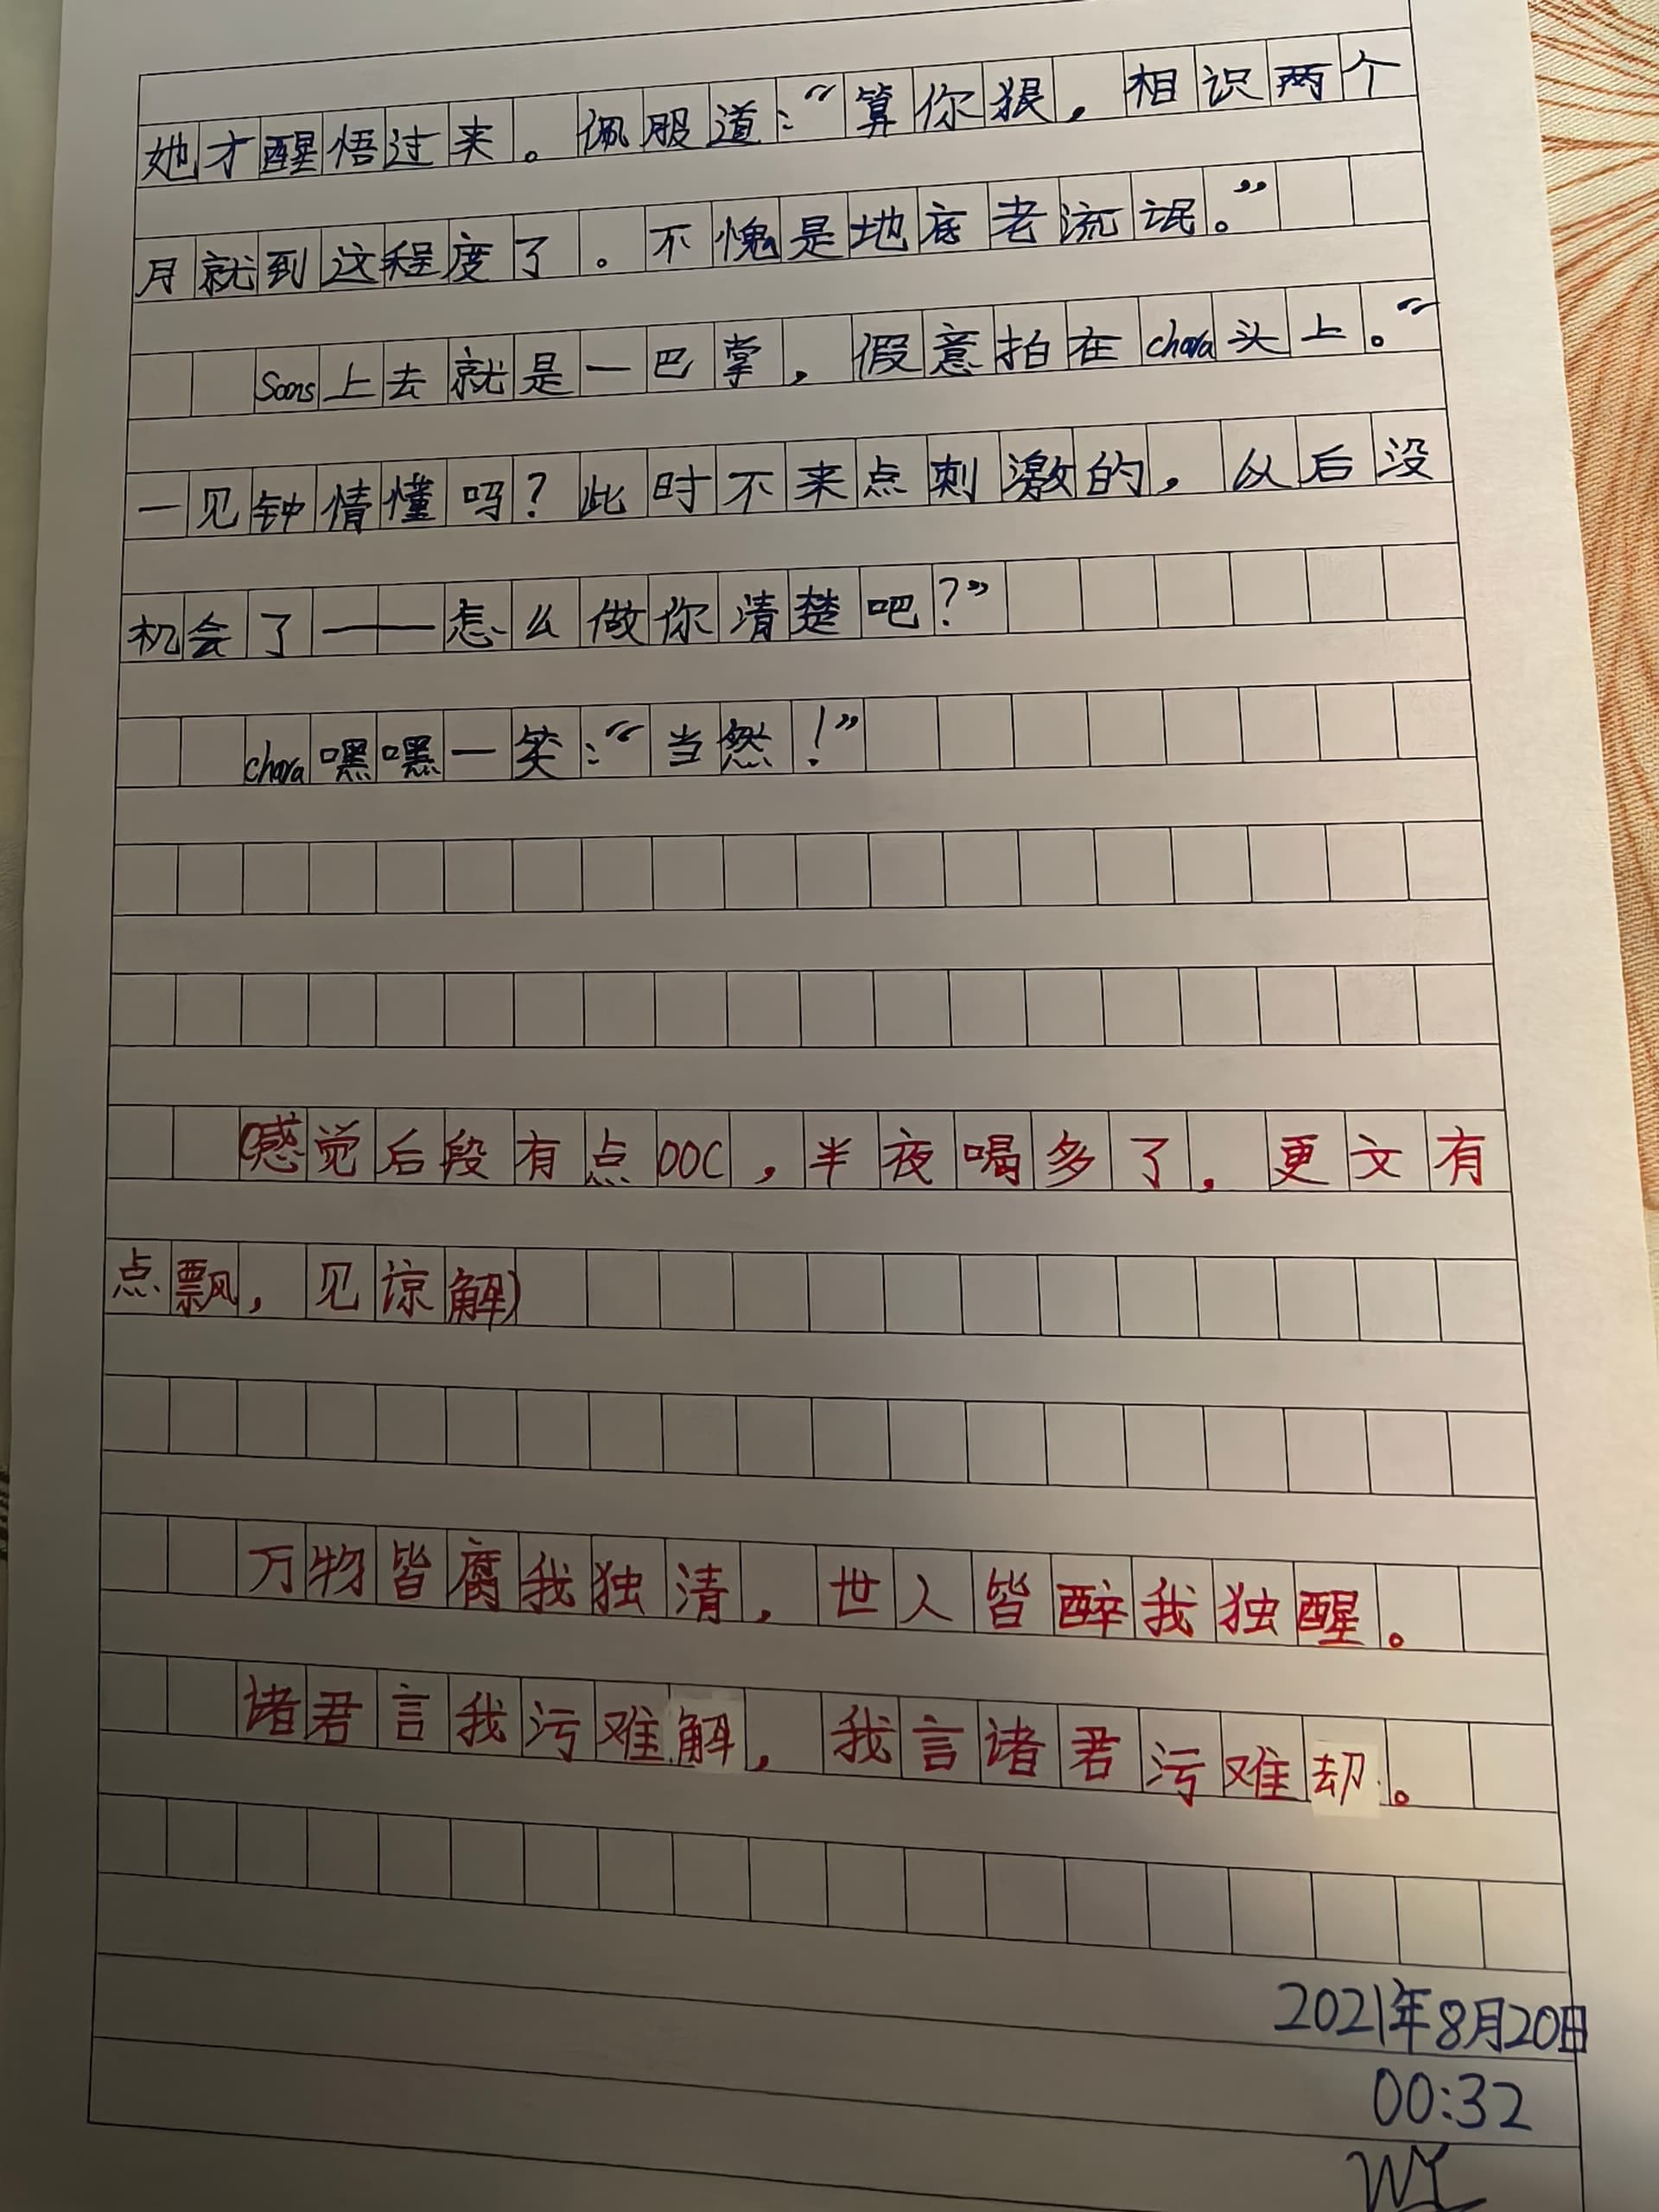 她才醒悟过来。佩服道：“算你狠，相识两个
月就到这程度了。不愧是地底老流氓。”
Sans上去就是一巴掌，假意拍在chara头上。“
一见钟情懂吗？此时不来点刺激的，以后没
机会了——怎么做你清楚吧？”
chara嘿嘿一笑：“当然！”
(感觉后段有点OOC，半夜喝多了，更文有
点飘，见谅解)
万物皆腐我独清，世人皆醉我独醒。
诸君言我污难解，我言诸君污难却。
2021年8月20日
00:32